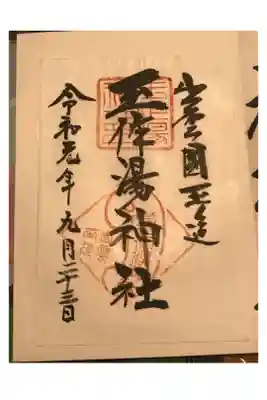 出雲國玉造
玉作湯神社
令和元年九月二十三日